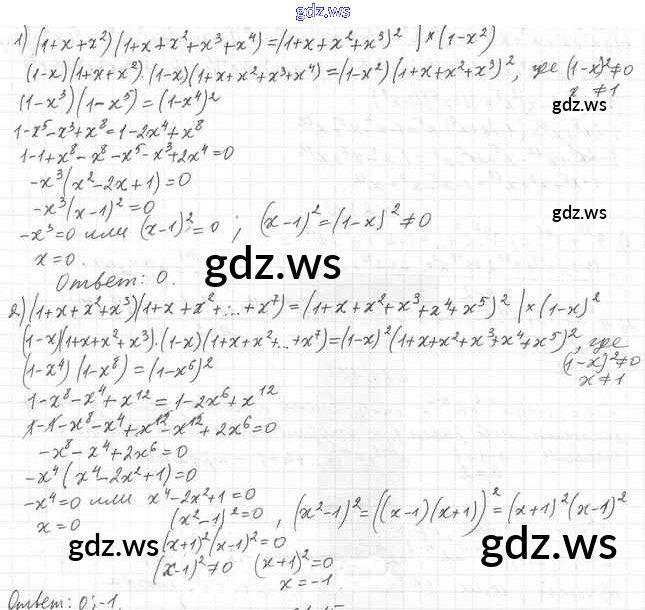 gdz.ws
1) (1+x+x²)(1+x+x²+x³+x⁴)=(1+x+x²+x³)² |×(1-x²)
(1-x)(1+x+x²)·(1-x)(1+x+x²+x³+x⁴)=(1-x²)(1+x+x²+x³)², где (1-x)²≠0
x≠1
(1-x³)(1-x⁵)=(1-x⁴)²
gdz.ws
1-x⁵-x³+x⁸=1-2x⁴+x⁸
1-1+x⁸-x⁸-x⁵-x³+2x⁴=0
-x³(x²-2x+1)=0
-x³(x-1)²=0
gdz.ws
-x³=0 или (x-1)²=0; (x-1)²=(1-x)²≠0
x=0.
gdz.ws
Ответ: 0.
2) (1+x+x²+x³)(1+x+x²+...+x⁷)=(1+x+x²+x³+x⁴+x⁵)² |×(1-x)²
(1-x)(1+x+x²+x³)·(1-x)(1+x+x²+...+x⁷)=(1-x)²(1+x+x²+x³+x⁴+x⁵)², где
(1-x)²≠0
x≠1
(1-x⁴)(1-x⁸)=(1-x⁶)²
1-x⁸-x⁴+x¹²=1-2x⁶+x¹²
1-1-x⁸-x⁴+x¹²-x¹²+2x⁶=0
-x⁸-x⁴+2x⁶=0
-x⁴(x⁴-2x²+1)=0
-x⁴=0 или x⁴-2x²+1=0
x=0 (x²-1)²=0, (x²-1)²=((x-1)(x+1))²=(x+1)²(x-1)²
gdz.ws
(x+1)²(x-1)²=0
gdz.ws
(x-1)²≠0 (x+1)²=0
x=-1.
Ответ: 0; -1.